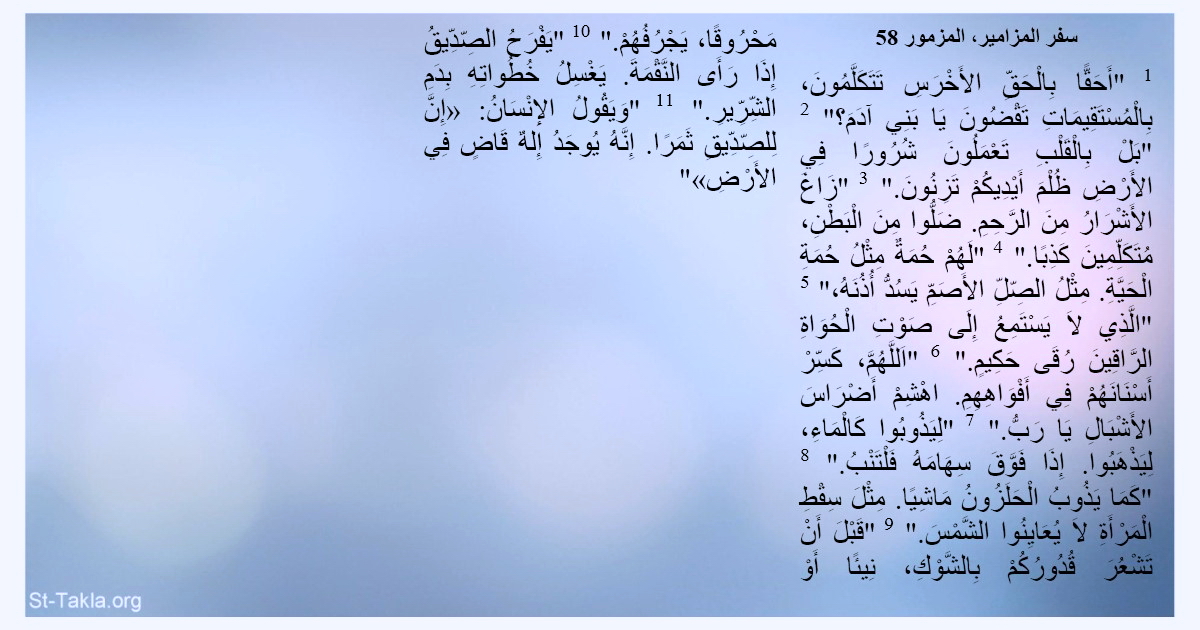 سفر المزامير، المزمور 58
1 "أَحَقًّا بِالْحَقِّ الأَخْرَسِ تَتَكَلَّمُونَ،
بِالْمُسْتَقِيمَاتِ تَقْضُونَ يَا بَنِي آدَمَ؟" 2
"بَلْ بِالْقَلْبِ تَعْمَلُونَ شُرُورًا فِي
الأَرْضِ ظُلْمَ أَيْدِيكُمْ تَزِنُونَ." 3 "زَاغَ
الأَشْرَارُ مِنَ الرَّحِمِ. ضَلُّوا مِنَ الْبَطْنِ،
مُتَكَلِّمِينَ كَذِبًا." 4 "لَهُمْ حُمَةٌ مِثْلُ حُمَةِ
الْحَيَّةِ. مِثْلُ الصِّلِّ الأَصَمِّ يَسُدُّ أُذُنَهُ،" 5
"الَّذِي لاَ يَسْتَمِعُ إِلَى صَوْتِ الْحُوَاةِ
الرَّاقِينَ رُقَى حَكِيمٍ." 6 "اَللَّهُمَّ، كَسِّرْ
أَسْنَانَهُمْ فِي أَفْوَاهِهِمِ. اهْشِمْ أَضْرَاسَ
الأَشْبَالِ يَا رَبُّ." 7 "لِيَذُوبُوا كَالْمَاءِ،
لِيَذْهَبُوا. إِذَا فَوَّقَ سِهَامَهُ فَلْتَنْبُ." 8
"كَمَا يَذُوبُ الْحَلَزُونُ مَاشِيًا. مِثْلَ سِقْطِ
الْمَرْأَةِ لاَ يُعَايِنُوا الشَّمْسَ." 9 "قَبْلَ أَنْ
تَشْعُرَ قُدُورُكُمْ بِالشَّوْكِ، نِيئًا أَوْ
مَحْرُوقًا، يَجْرُفُهُمْ." 10 "يَفْرَحُ الصِّدِّيقُ
إِذَا رَأَى النَّقْمَةَ. يَغْسِلُ خُطُواتِهِ بِدَمِ
الشِّرِّيرِ." 11 "وَيَقُولُ الإِنْسَانُ: «إِنَّ
لِلصِّدِّيقِ ثَمَرًا. إِنَّهُ يُوجَدُ إِلهٌ قَاضٍ فِي
الأَرْضِ»"
St-Takla.org